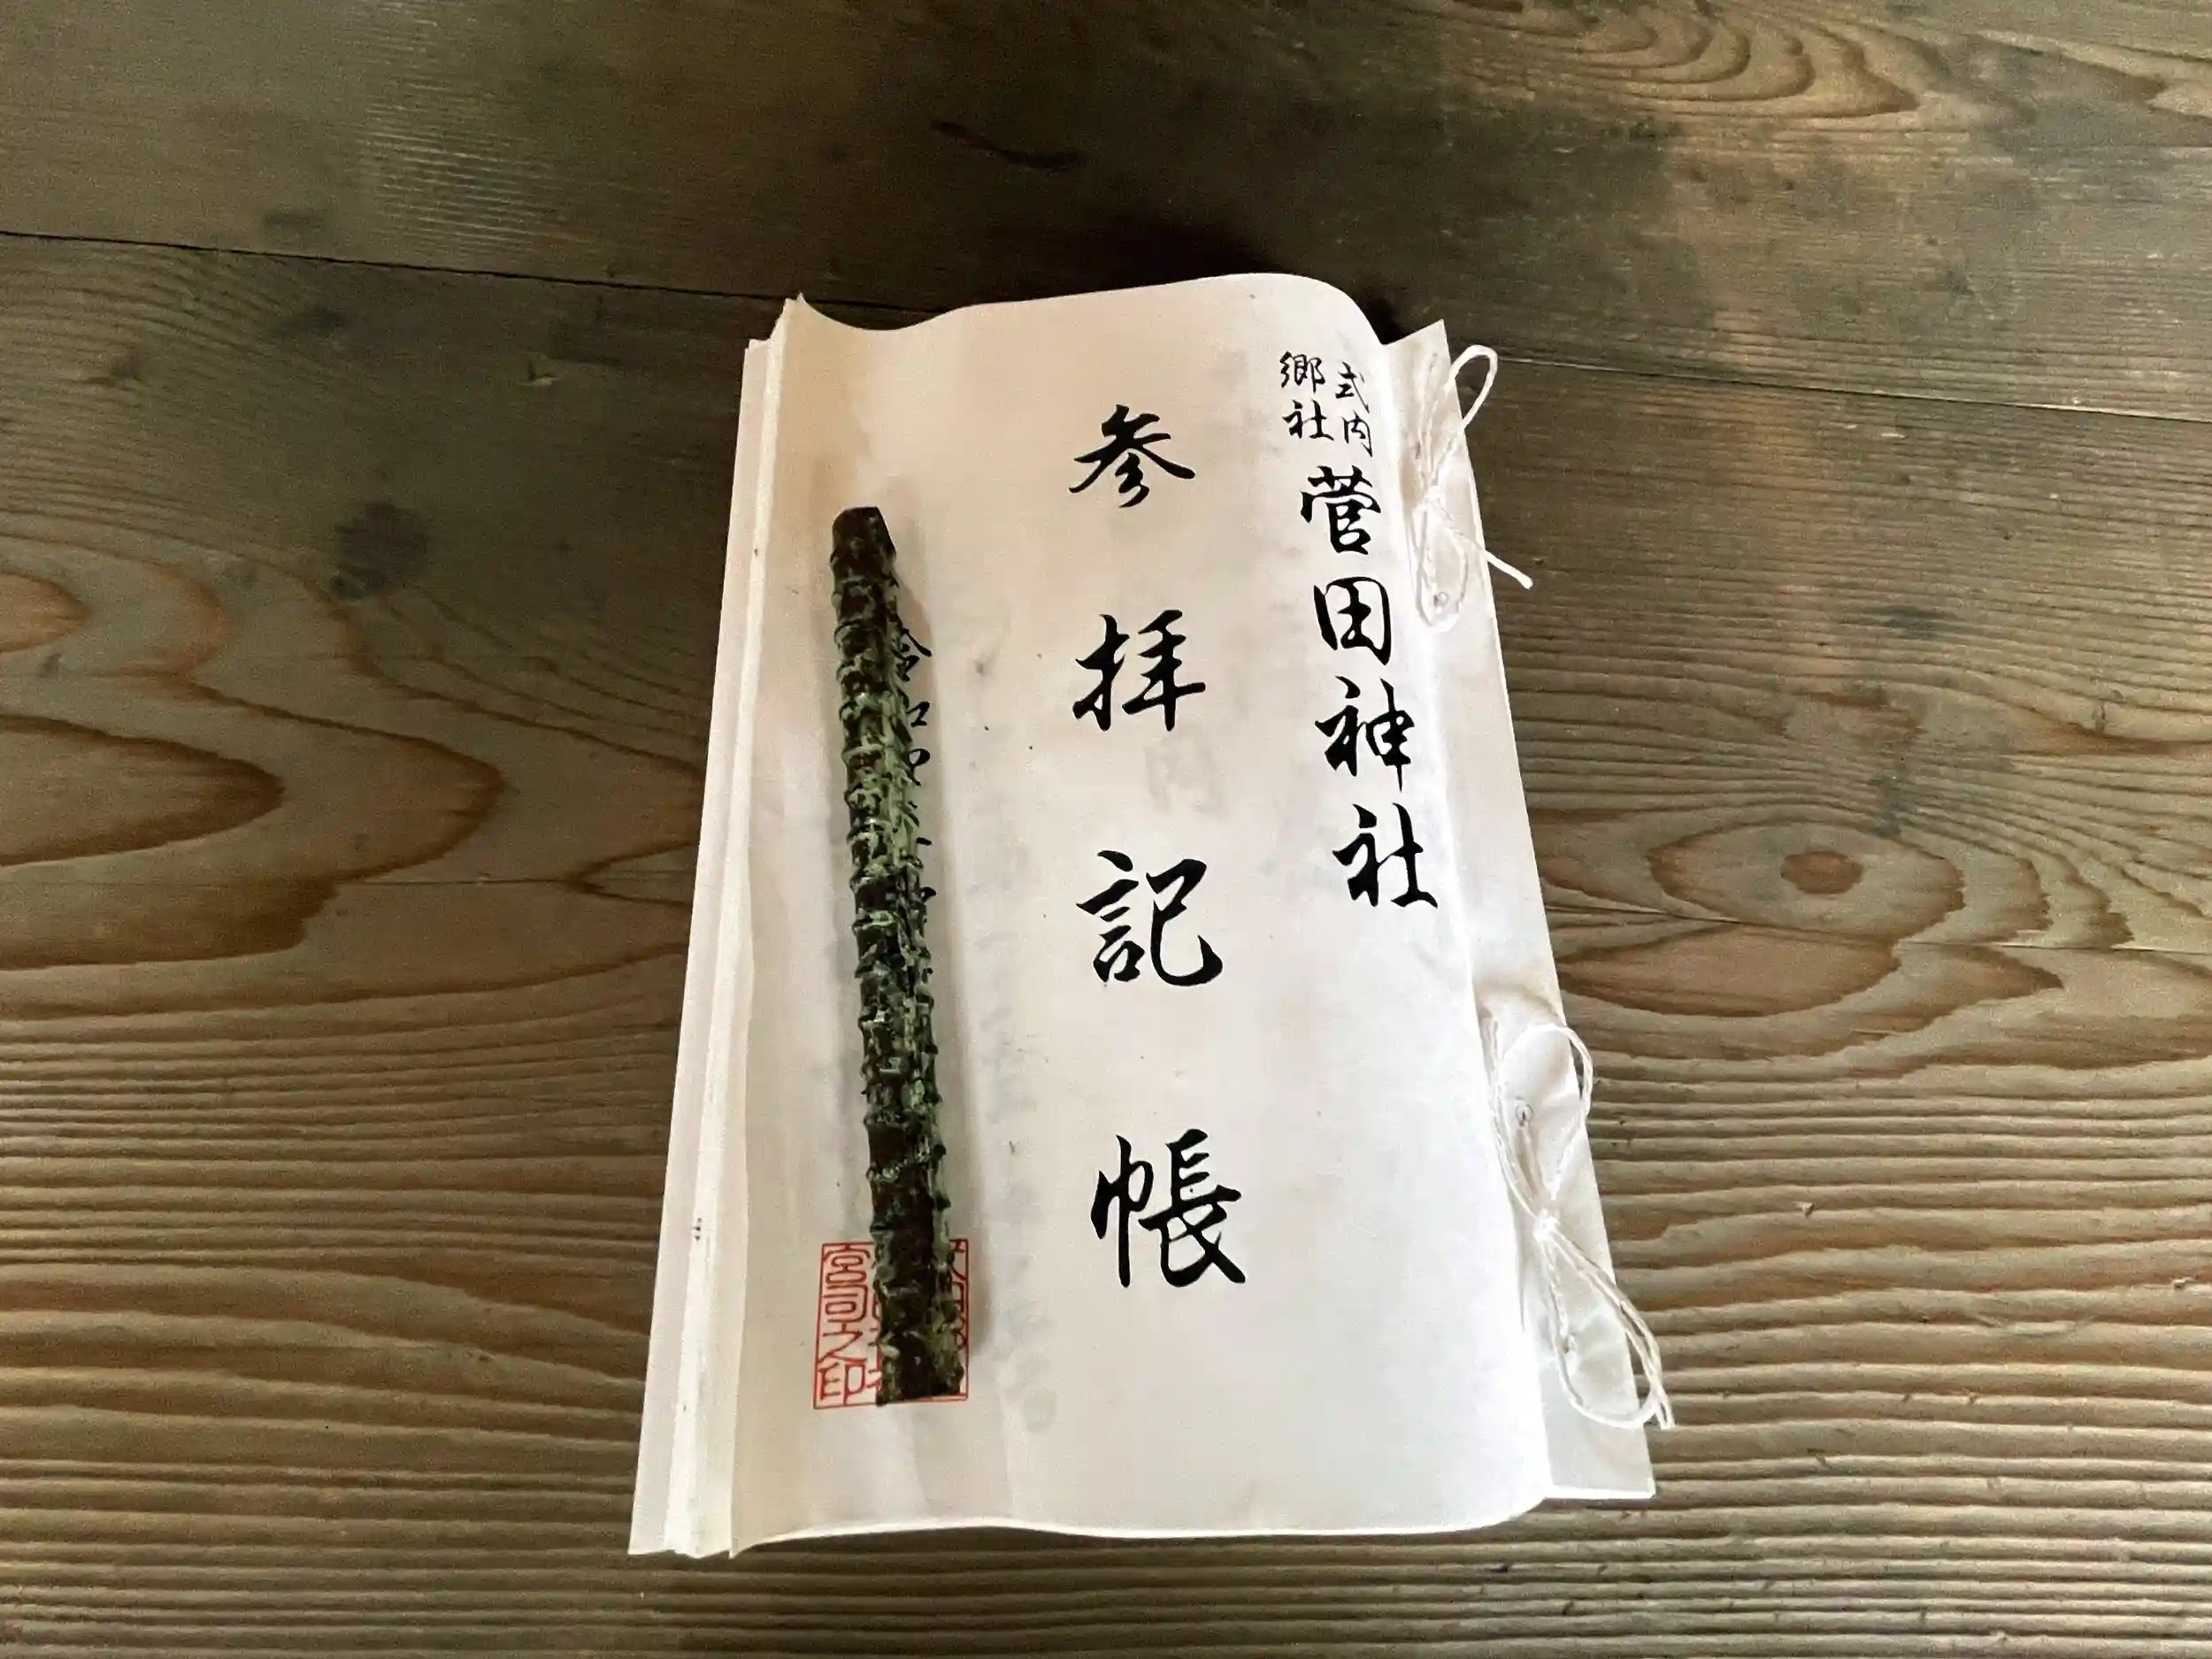 式内
郷社
菅田神社
参拝記帳
令和
宮司之印